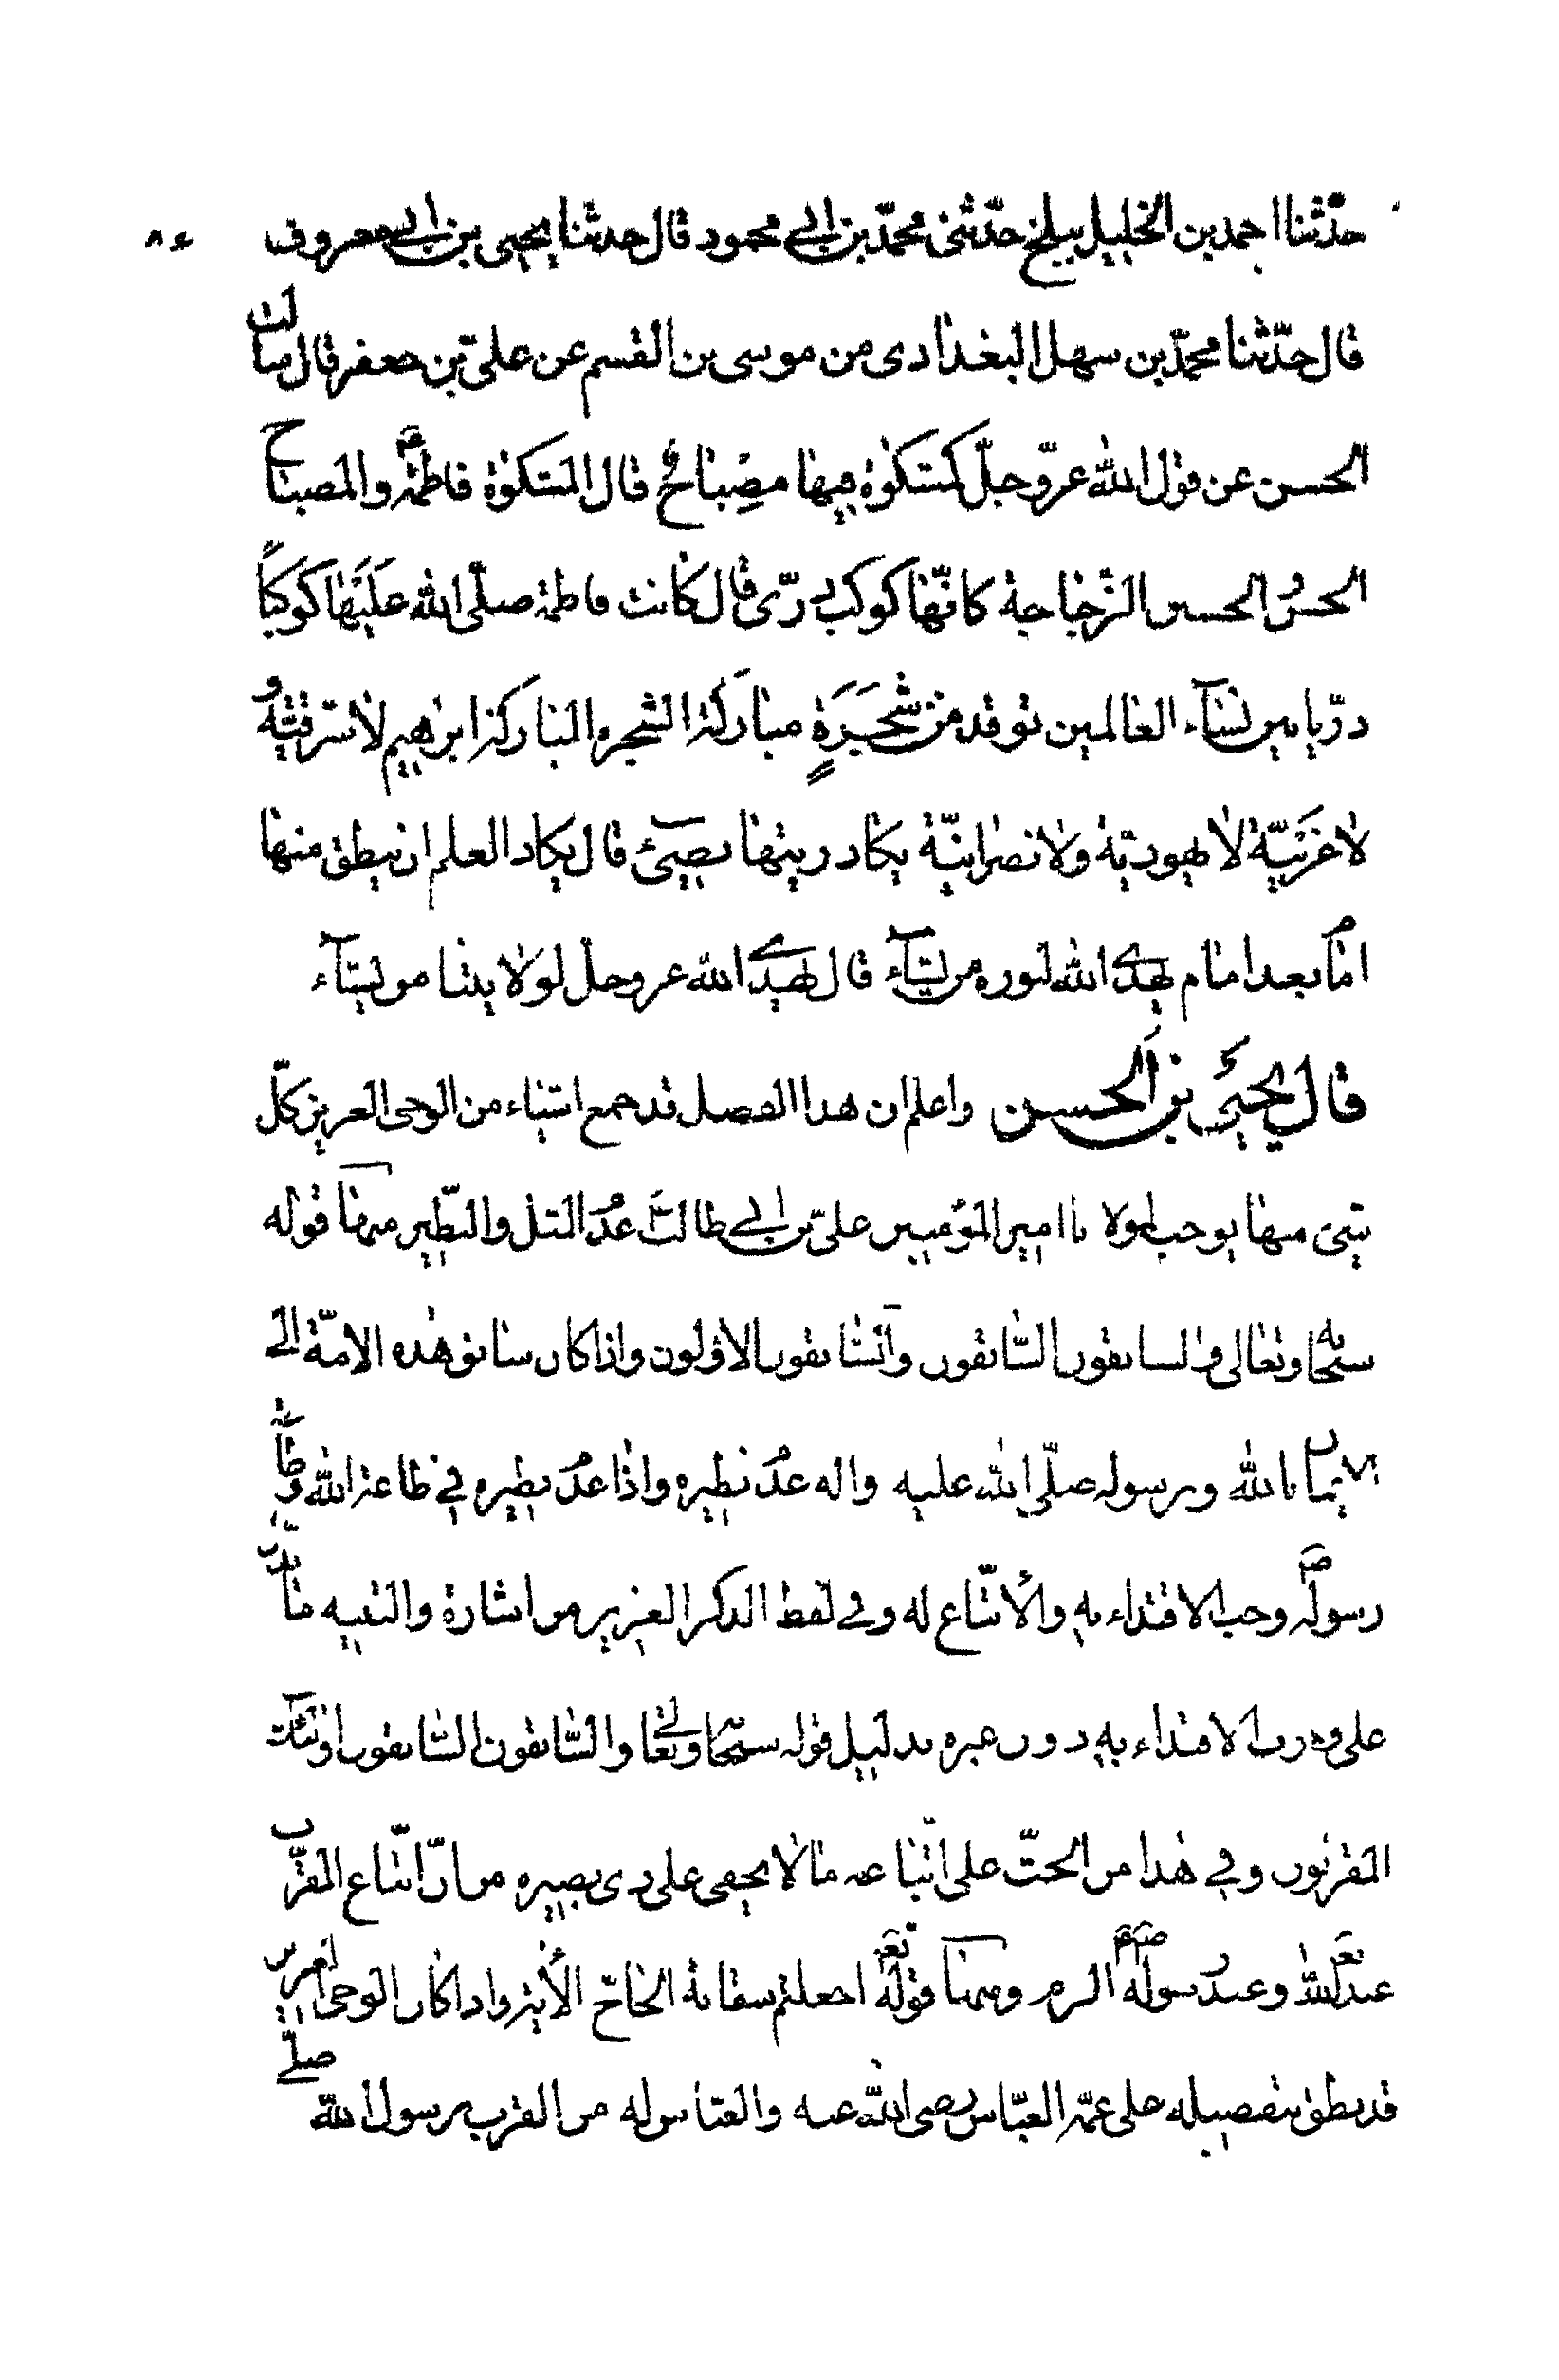 حدّثنا احمد بن الخليل ببلخ حدّثنى محمّد بن ابى محمود قال حدثنا يحيى بن ابى معروف
قال حدّثنا محمّد بن سهل البغدادى من موسى بن القسم عن علىّ بن جعفر قال سالت
الحسن عن قول الله عزّ وجلّ كمشكوٰة فيها مصباح قال المشكوٰة فاطمة والمصباح
الحسن والحسين الزّجاجة كانّها كوكب درّى قال كانت فاطمة صلّى الله عليها كوكبًا
درّيا من نساء العالمين توقد من شَجَرَةٍ مباركة الشجره المباركة ابرهيم لا شرقيّة و
لا غربيّة لا يهوديّة ولا نصرانيّة يكاد زيتها يضيئ قال يكاد العلم ان ينطق منها
امام بعد امام يهدى الله لنوره من يشاء قال يهدى الله عز وجل لولايتنا من يشاء
قال يحيى بن الحسن واعلم ان هذا الفصل قد جمع اشياء من الوحى العزيز كلّ
شئ منها يوجب لمولانا امير المؤمنين علىّ بن ابى طالب عدم المثل والنظير منها قوله
سبحانه وتعالى والسابقون السّابقون والسّابقون الاوّلون واذا كان سابق هذه الامّة الى
الايمان بالله وبرسوله صلّى الله عليه واله عدم نظيره واذا عدم نظيره في طاعة الله وطاعة
رسوله وجب الاقتداء به والاتّباع له وفى لفظ الذكر العزيز من اشارة والتنبيه ما يدلّ
على وجوب الاقتداء به دون غيره بدليل قوله سبحانه وتعالى والسّابقون السّابقون اولئك
المقربون وفى هذا من الحثّ على اتّباعه ما لا يخفى على ذى بصيره من انّ اتباع المقرّب
عند الله تع وعند رسوله الزم ومنها قوله تع اجعلتم سقاية الحاجّ الأية واذا كان الوحى العزيز
قد نطق بتفضيله على عمّه العبّاس رضى الله عنه والعبّاس له من القرب برسول الله صلى
٨٤